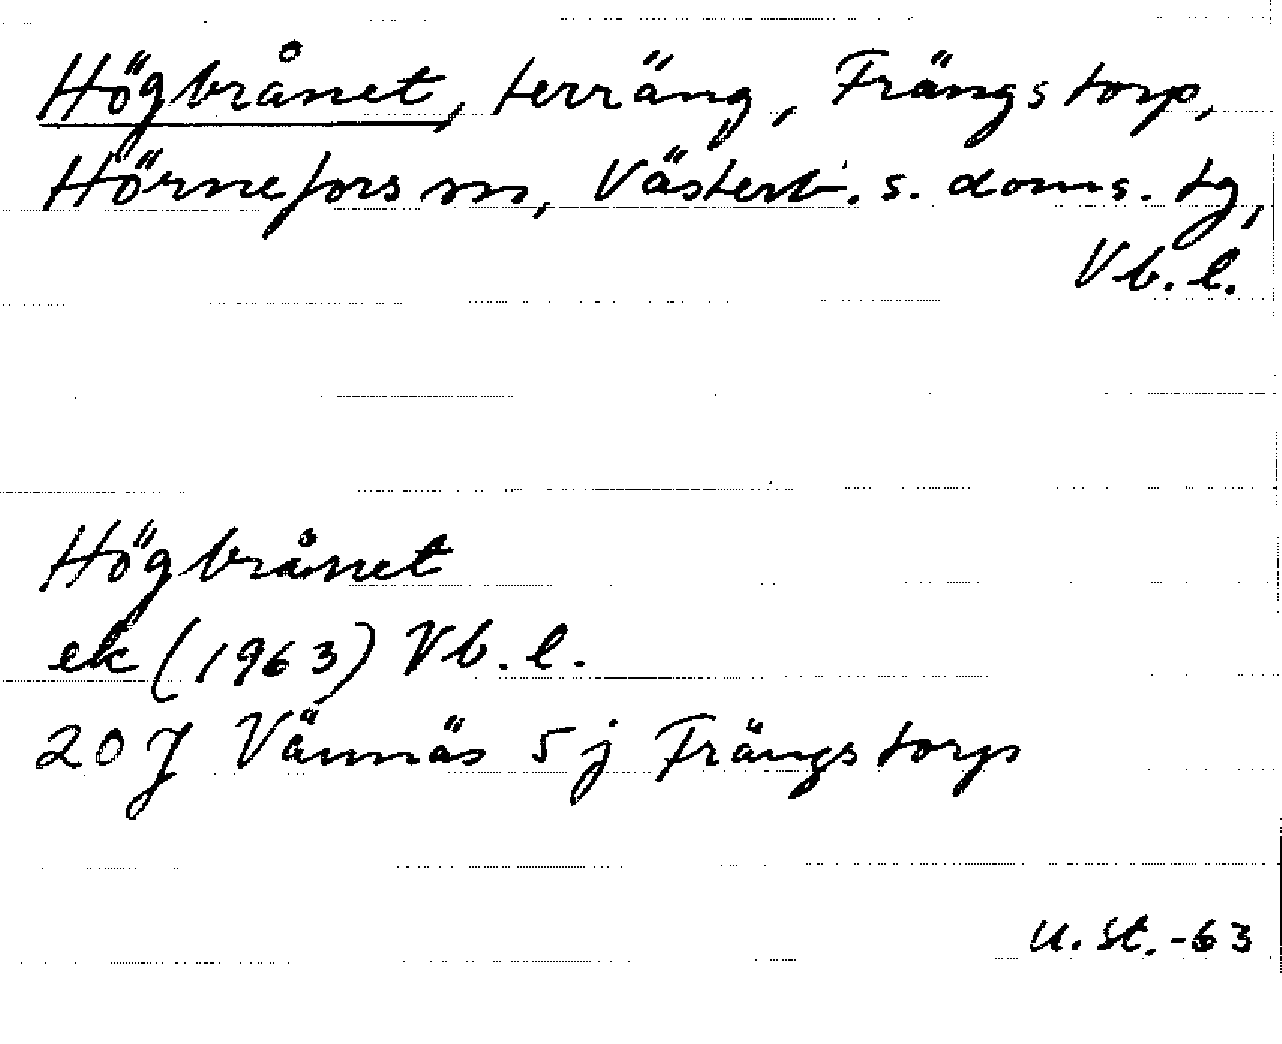 Högbrånet, terräng, Frängstorp,
Hörnefors sn, Västerb. s. doms. tg,
Vb. l.
Högbrånet
ek (1963) Vb. l.
20 J Vännäs 5 j Frängstorp
U. St. -63